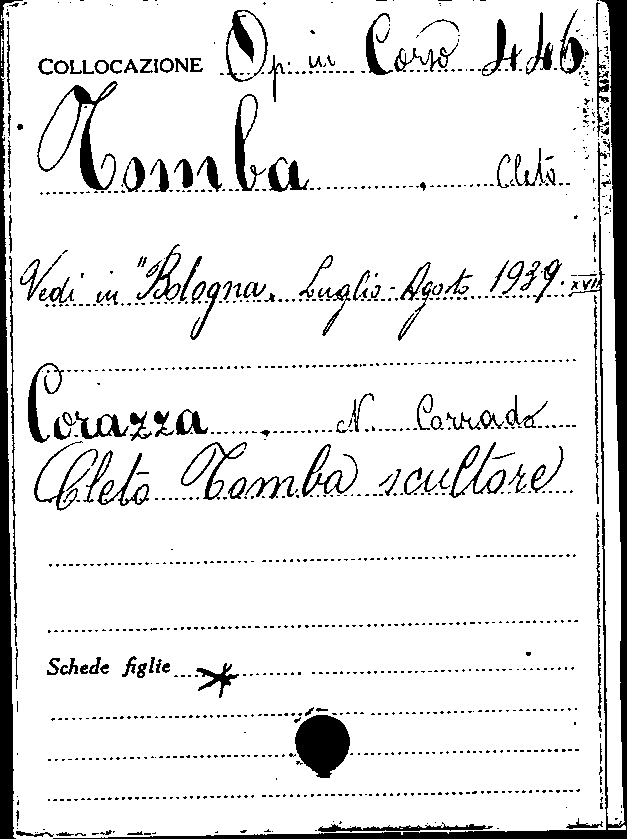 COLLOCAZIONE Op. in Corso 446
Tomba . Cleto
Vedi in "Bologna. Luglio-Agosto 1939. XVII
Corazza . N. Corrado
Cleto Tomba scultore
Schede figlie